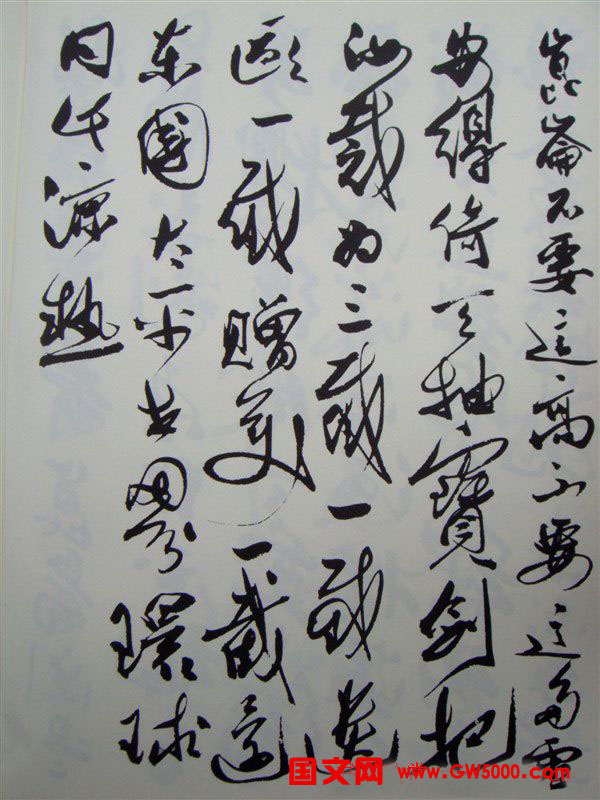 崑崙不要這高不要這多雪
安得倚天抽寶劍把
汝裁为三截一截遗
歐一截贈美一截還
东國太平世界環球
同此凉热
国文网 www.GW5000.com